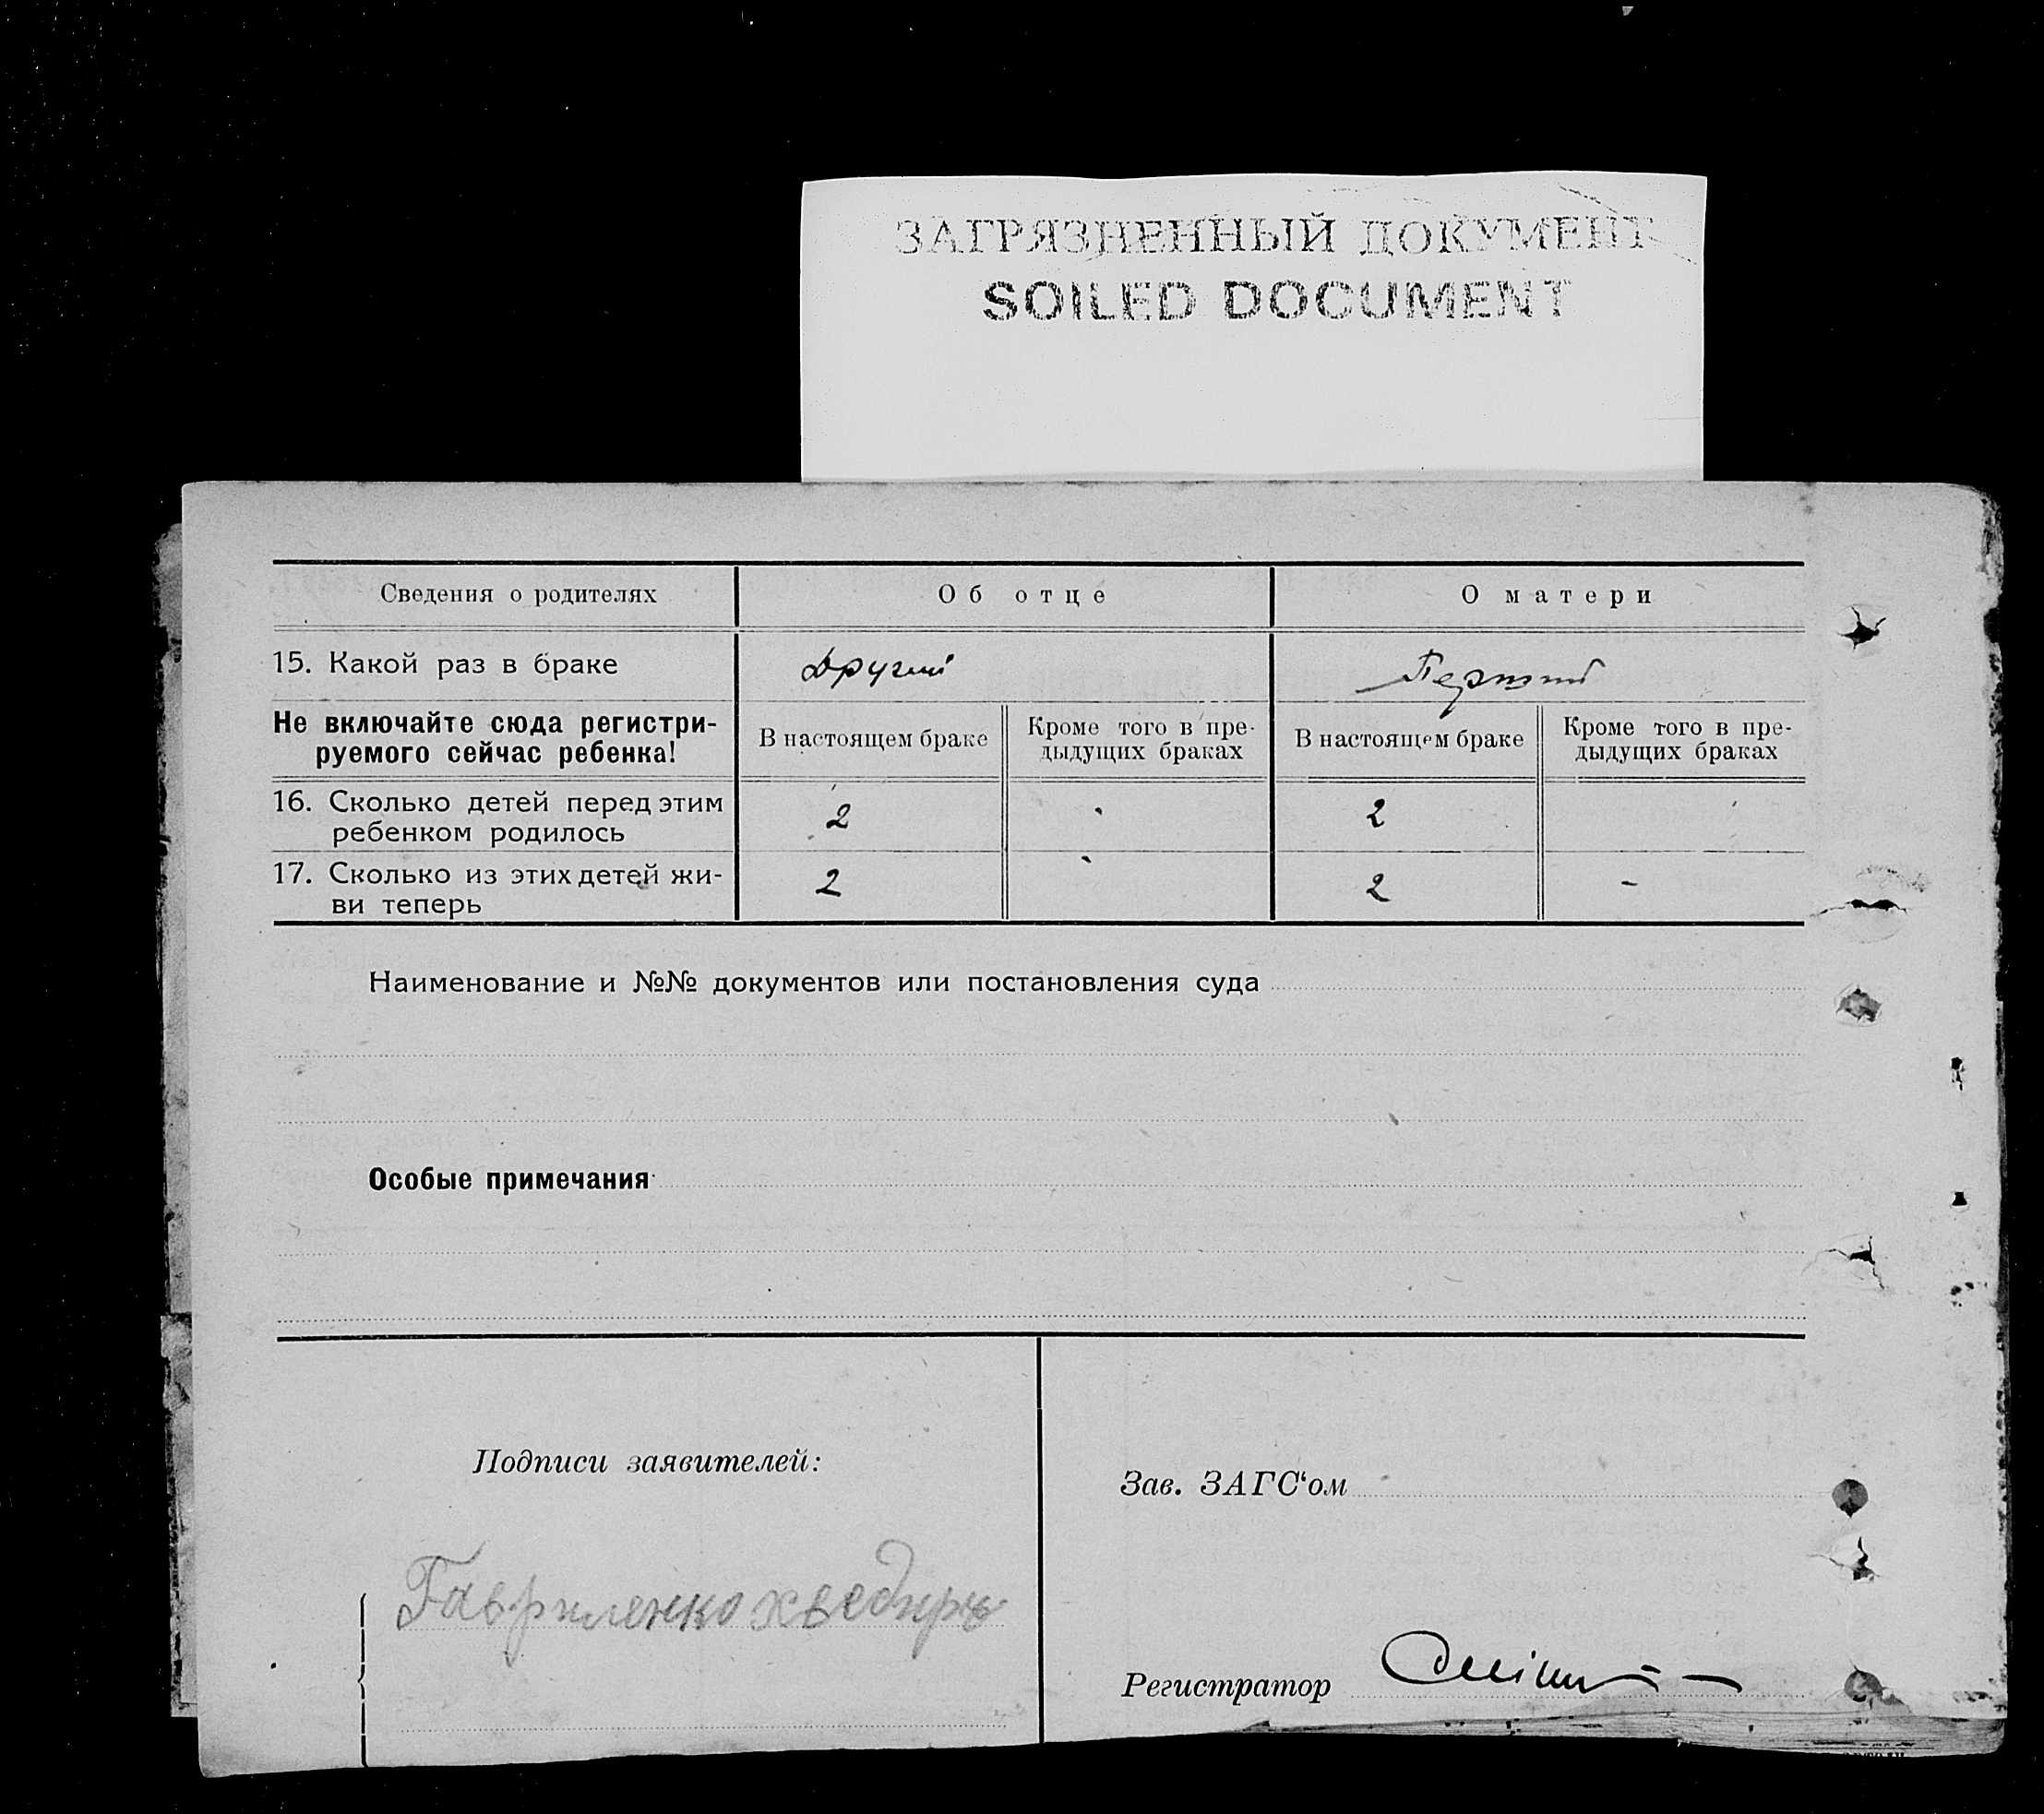 ЗАГРЯЗНЕННЫЙ ДОКУМЕНТ
SOILED DOCUMENT
Сведения о родителях
Об отце
О матери
15. Какой раз в браке
Другий
Перший
Не включайте сюда регистри-
руемого сейчас ребенка!
В настоящем браке
Кроме того в пре-
дыдущих браках
В настоящем браке
Кроме того в пре-
дыдущих браках
16. Сколько детей перед этим
ребенком родилось
2
2
17. Сколько из этих детей жи-
ви теперь
2
2
-
Наименование и №№ документов или постановления суда
Особые примечания
Подписи заявителей:
Гавриленко Хведирь
Зав. ЗАГС‘ом
Регистратор